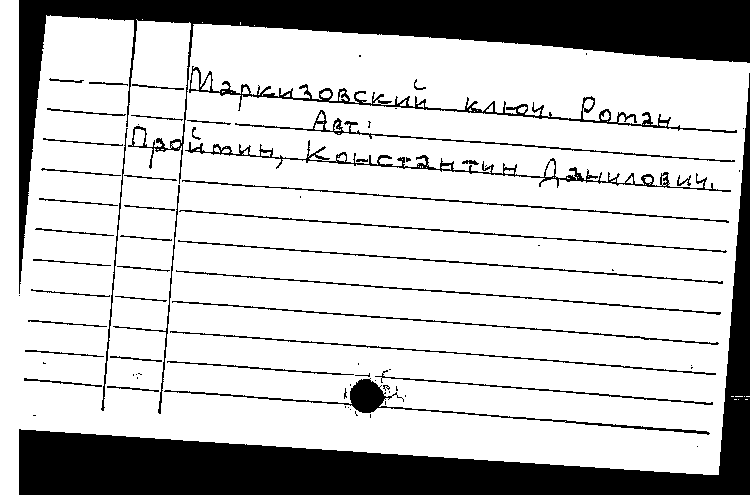 Маркизовский ключ. Роман.
Авт.:
Проймин, Константин Данилович.